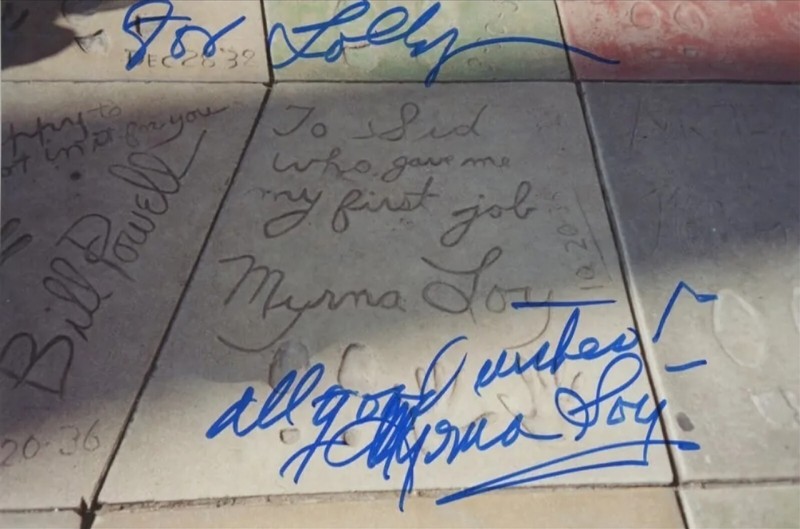 For Lolly
DEC 28 32
To Sid
who gave me
my first job
Myrna Loy
10.20
for you
Bill Powell
20-36
all good wishes!
Myrna Loy